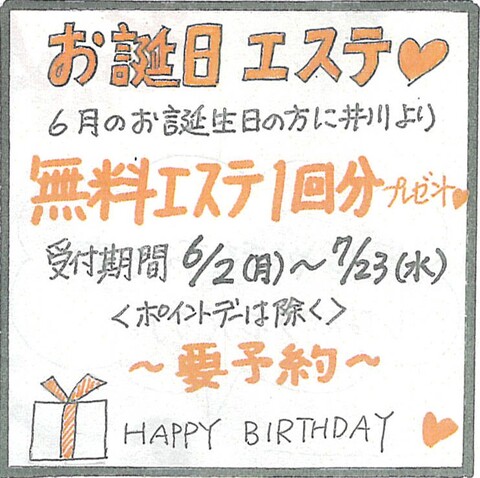 お誕日エステ
6月のお誕生日の方に井川より
無料エステ1回分プレゼント
受付期間 6/2(月)〜7/23(水)
<ポイントデーは除く>
〜要予約〜
HAPPY BIRTHDAY